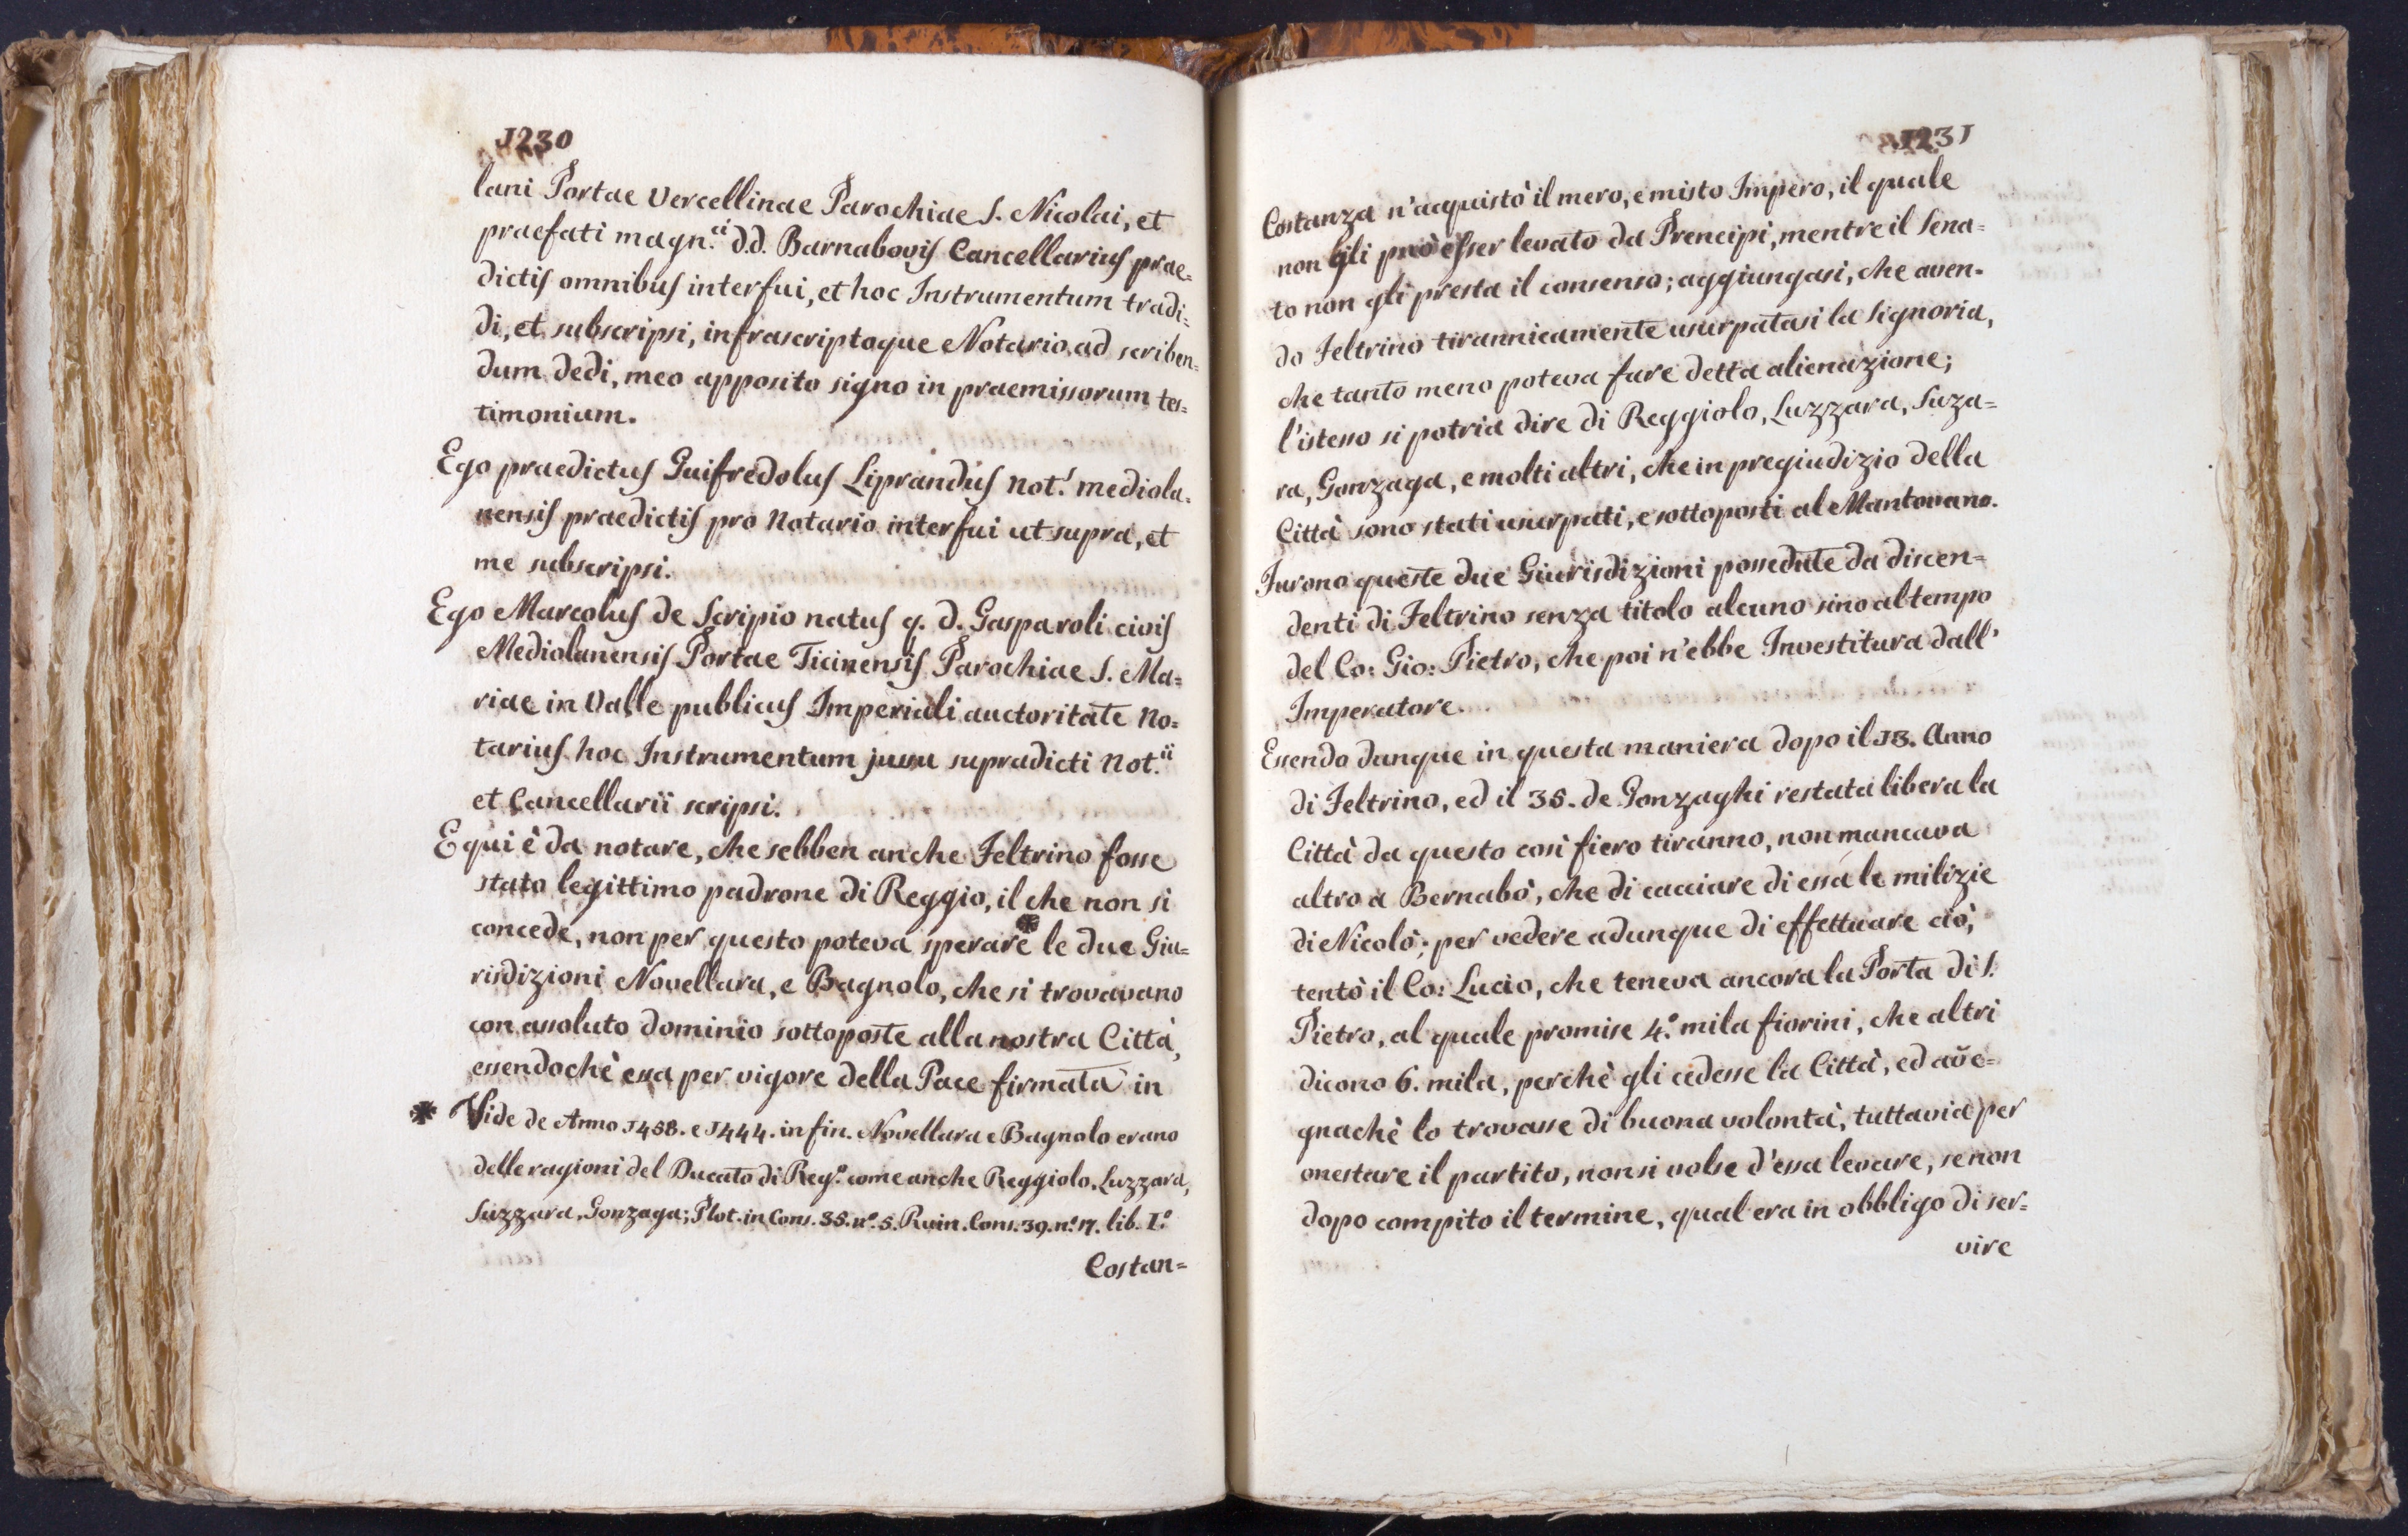 1230
lani Portae Vercellinae Parochiae S. Nicolai, et
praefati magn.ci d.d. Barnabovis Cancellarius prae=
dictis omnibus interfui, et hoc Instrumentum tradi=
di, et subscripsi, infrascriptoque Notario ad scriben=
dum dedi, meo apposito signo in praemissorum tes=
timonium.
Ego praedictus Guifredolus Liprandus not.s mediola=
nensis praedictis pro Notario interfui ut supra, et
me subscripsi.
Ego Marcolus de Scripio natus q. d. Gasparoli civis
Mediolanensis Portae Ticinensis Parochiae S. Ma=
riae in Valle publicus Imperiali auctoritate No=
tarius hoc Instrumentum jussu supradicti Not.ii
et Cancellarii scripsi.
E qui è da notare, che sebben anche Feltrino fosse
stato legittimo padrone di Reggio, il che non si
concede, non per questo poteva sperare * le due Giu=
risdizioni Novellara, e Bagnolo, che si trovavano
con assoluto dominio sottoposte alla nostra Città,
essendochè essa per vigore della Pace firmata in
* Vide de Anno 1458. e 1444. in fin. Novellara e Bagnolo erano
delle ragioni del Ducato di Reg.o come anche Reggiolo, Luzzara,
Suzzara, Gonzaga; Plot. in Cons. 35. n.o 5. Ruin. Cons. 39. n.o 17. lib. I.o
Costan=
1231
Costanza n'acquistò il mero, e misto Impero, il quale
non gli può esser levato da Prencipi, mentre il Sena=
to non gli presta il consenso; aggiungasi, che aven=
do Feltrino tirannicamente usurpatasi la Signoria,
che tanto meno poteva fare detta alienazione;
l'istesso si potria dire di Reggiolo, Luzzara, Suza=
ra, Gonzaga, e molti altri, che in pregiudizio della
Città sono stati usurpati, e sottoposti al Mantovano.
Furono queste due Giurisdizioni possedute da discen=
denti di Feltrino senza titolo alcuno sino al tempo
del Co: Gio: Pietro, che poi n'ebbe Investitura dall'
Imperatore.
Essendo dunque in questa maniera dopo il 13. Anno
di Feltrino, ed il 35. de Gonzaghi restata libera la
Città da questo così fiero tiranno, non mancava
altro a Bernabò, che di cacciare di essa le milizie
di Nicolò; per vedere adunque di effettuare ciò,
tentò il Co: Lucio, che teneva ancora la Porta di S.
Pietro, al quale promise 4.o mila fiorini, che altri
dicono 6. mila, perchè gli cedesse la Città, ed av̄e=
gnachè lo trovasse di buona volontà, tuttavia per
onestare il partito, non si volse d'essa levare, se non
dopo compito il termine, qual era in obbligo di ser=
vire